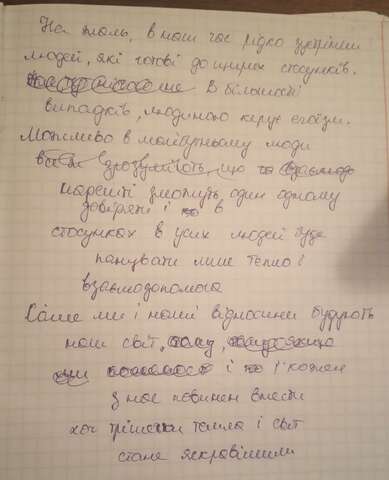 На жаль, в наш час рідко зустрінеш
людей, які готові до щирих стосунків.
В більшості
випадків, людиною керує егоїзм.
Можливо в майбутньому люди
всі зрозуміють, що
нарешті зможуть один одному
довіряти і в
стосунках в усіх людей буде
панувати лише тепло і
взаємодопомога
Саме ми і наші відносини будують
наш світ,
і і кожен
з нас повинен внести
хоч трішечки тепла і світ
стане яскравішим